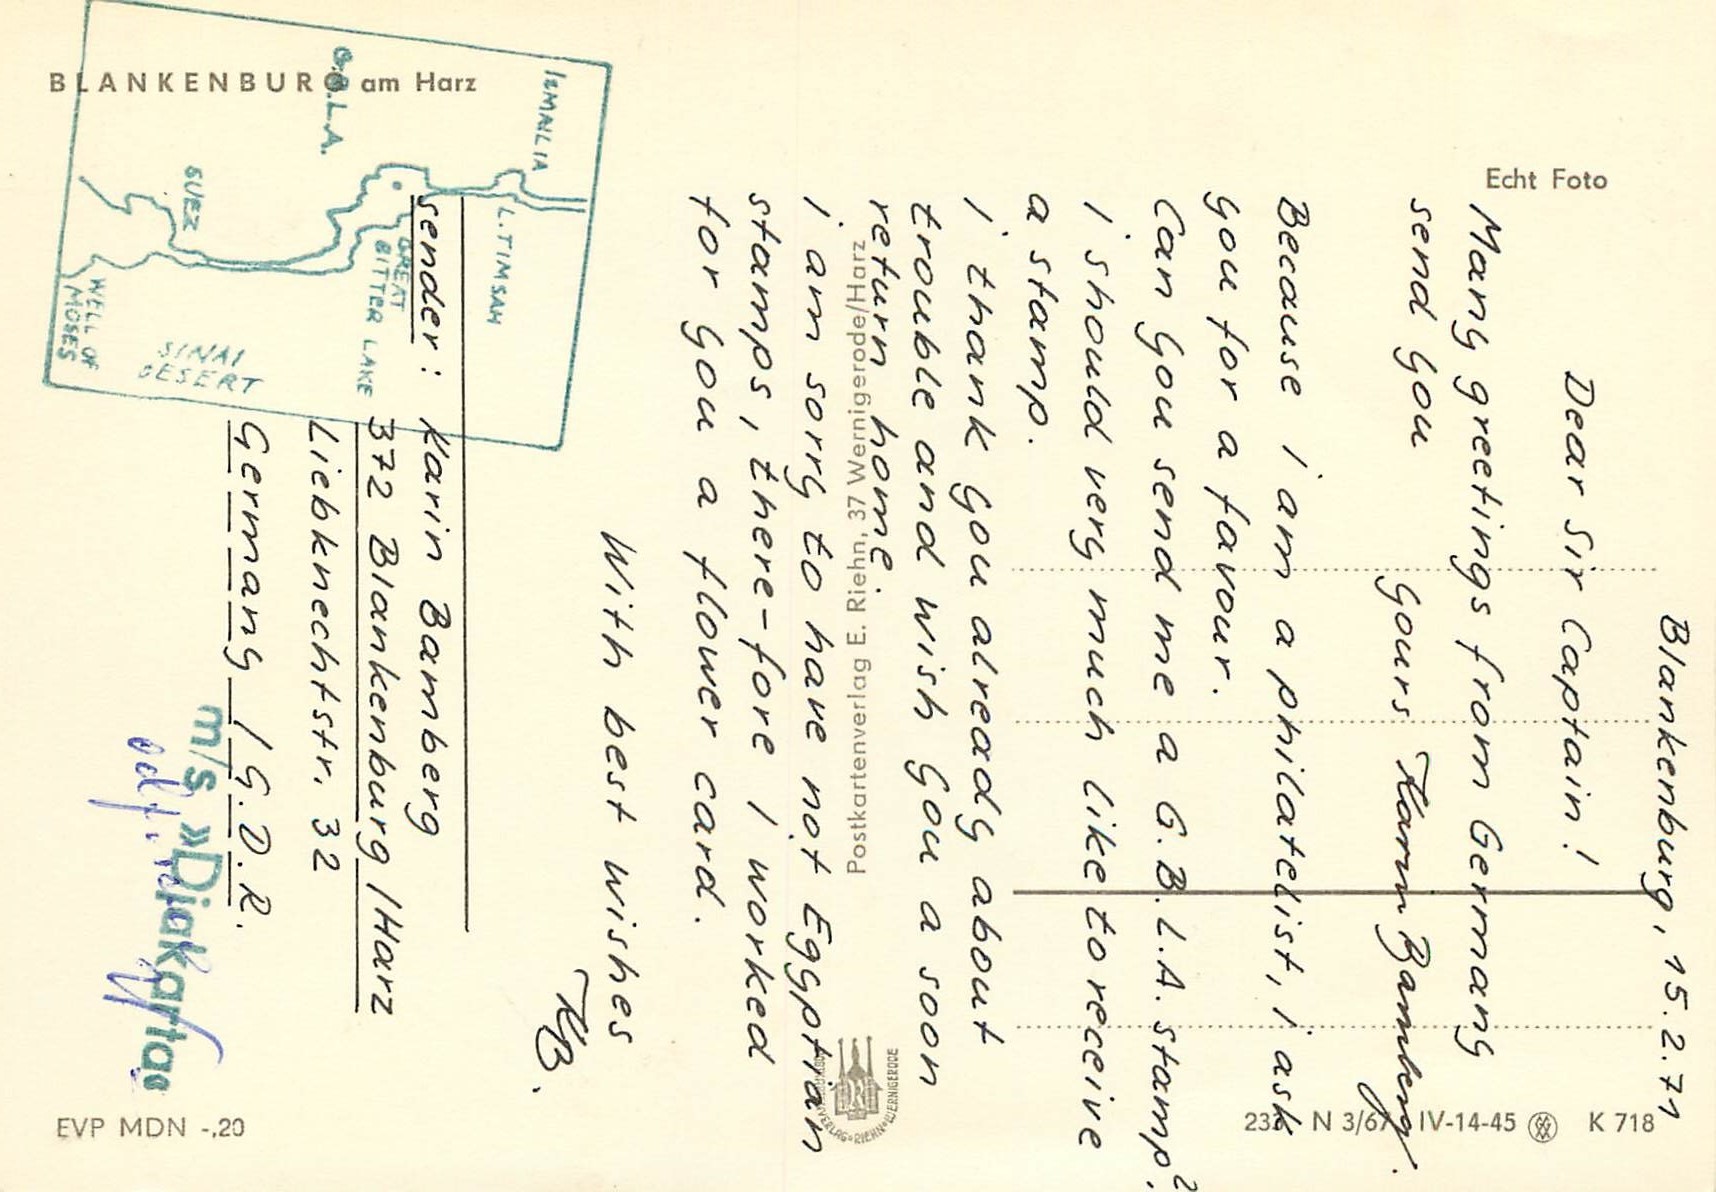 BLANKENBURG am Harz
Echt Foto
Blankenburg, 15.2.71
Dear Sir Captain!
Many greetings from Germany
send you
yours Karin Bamberg.
Because i am a philatelist, i ask
you for a favour.
Can you send me a G.B.L.A. stamp?
i should very much like to receive
a stamp.
i thank you already about
trouble and wish you a soon
return home.
i am sorry to have not Egyptian
stamps, there-fore i worked
for you a flower card.
With best wishes
KB.
sender: Karin Bamberg
372 Blankenburg/Harz
Liebknechtstr. 32
Germany / G.D.R.
ISMAILIA
L.TIMSAH
G.B.L.A.
GREAT
BITTER LAKE
SUEZ
SINAI
DESERT
WELL OF
MOSES
m/s »Djakarta«
Postkartenverlag E. Riehn, 37 Wernigerode/Harz
EVP MDN -,20
N 3/67 IV-14-45 K 718